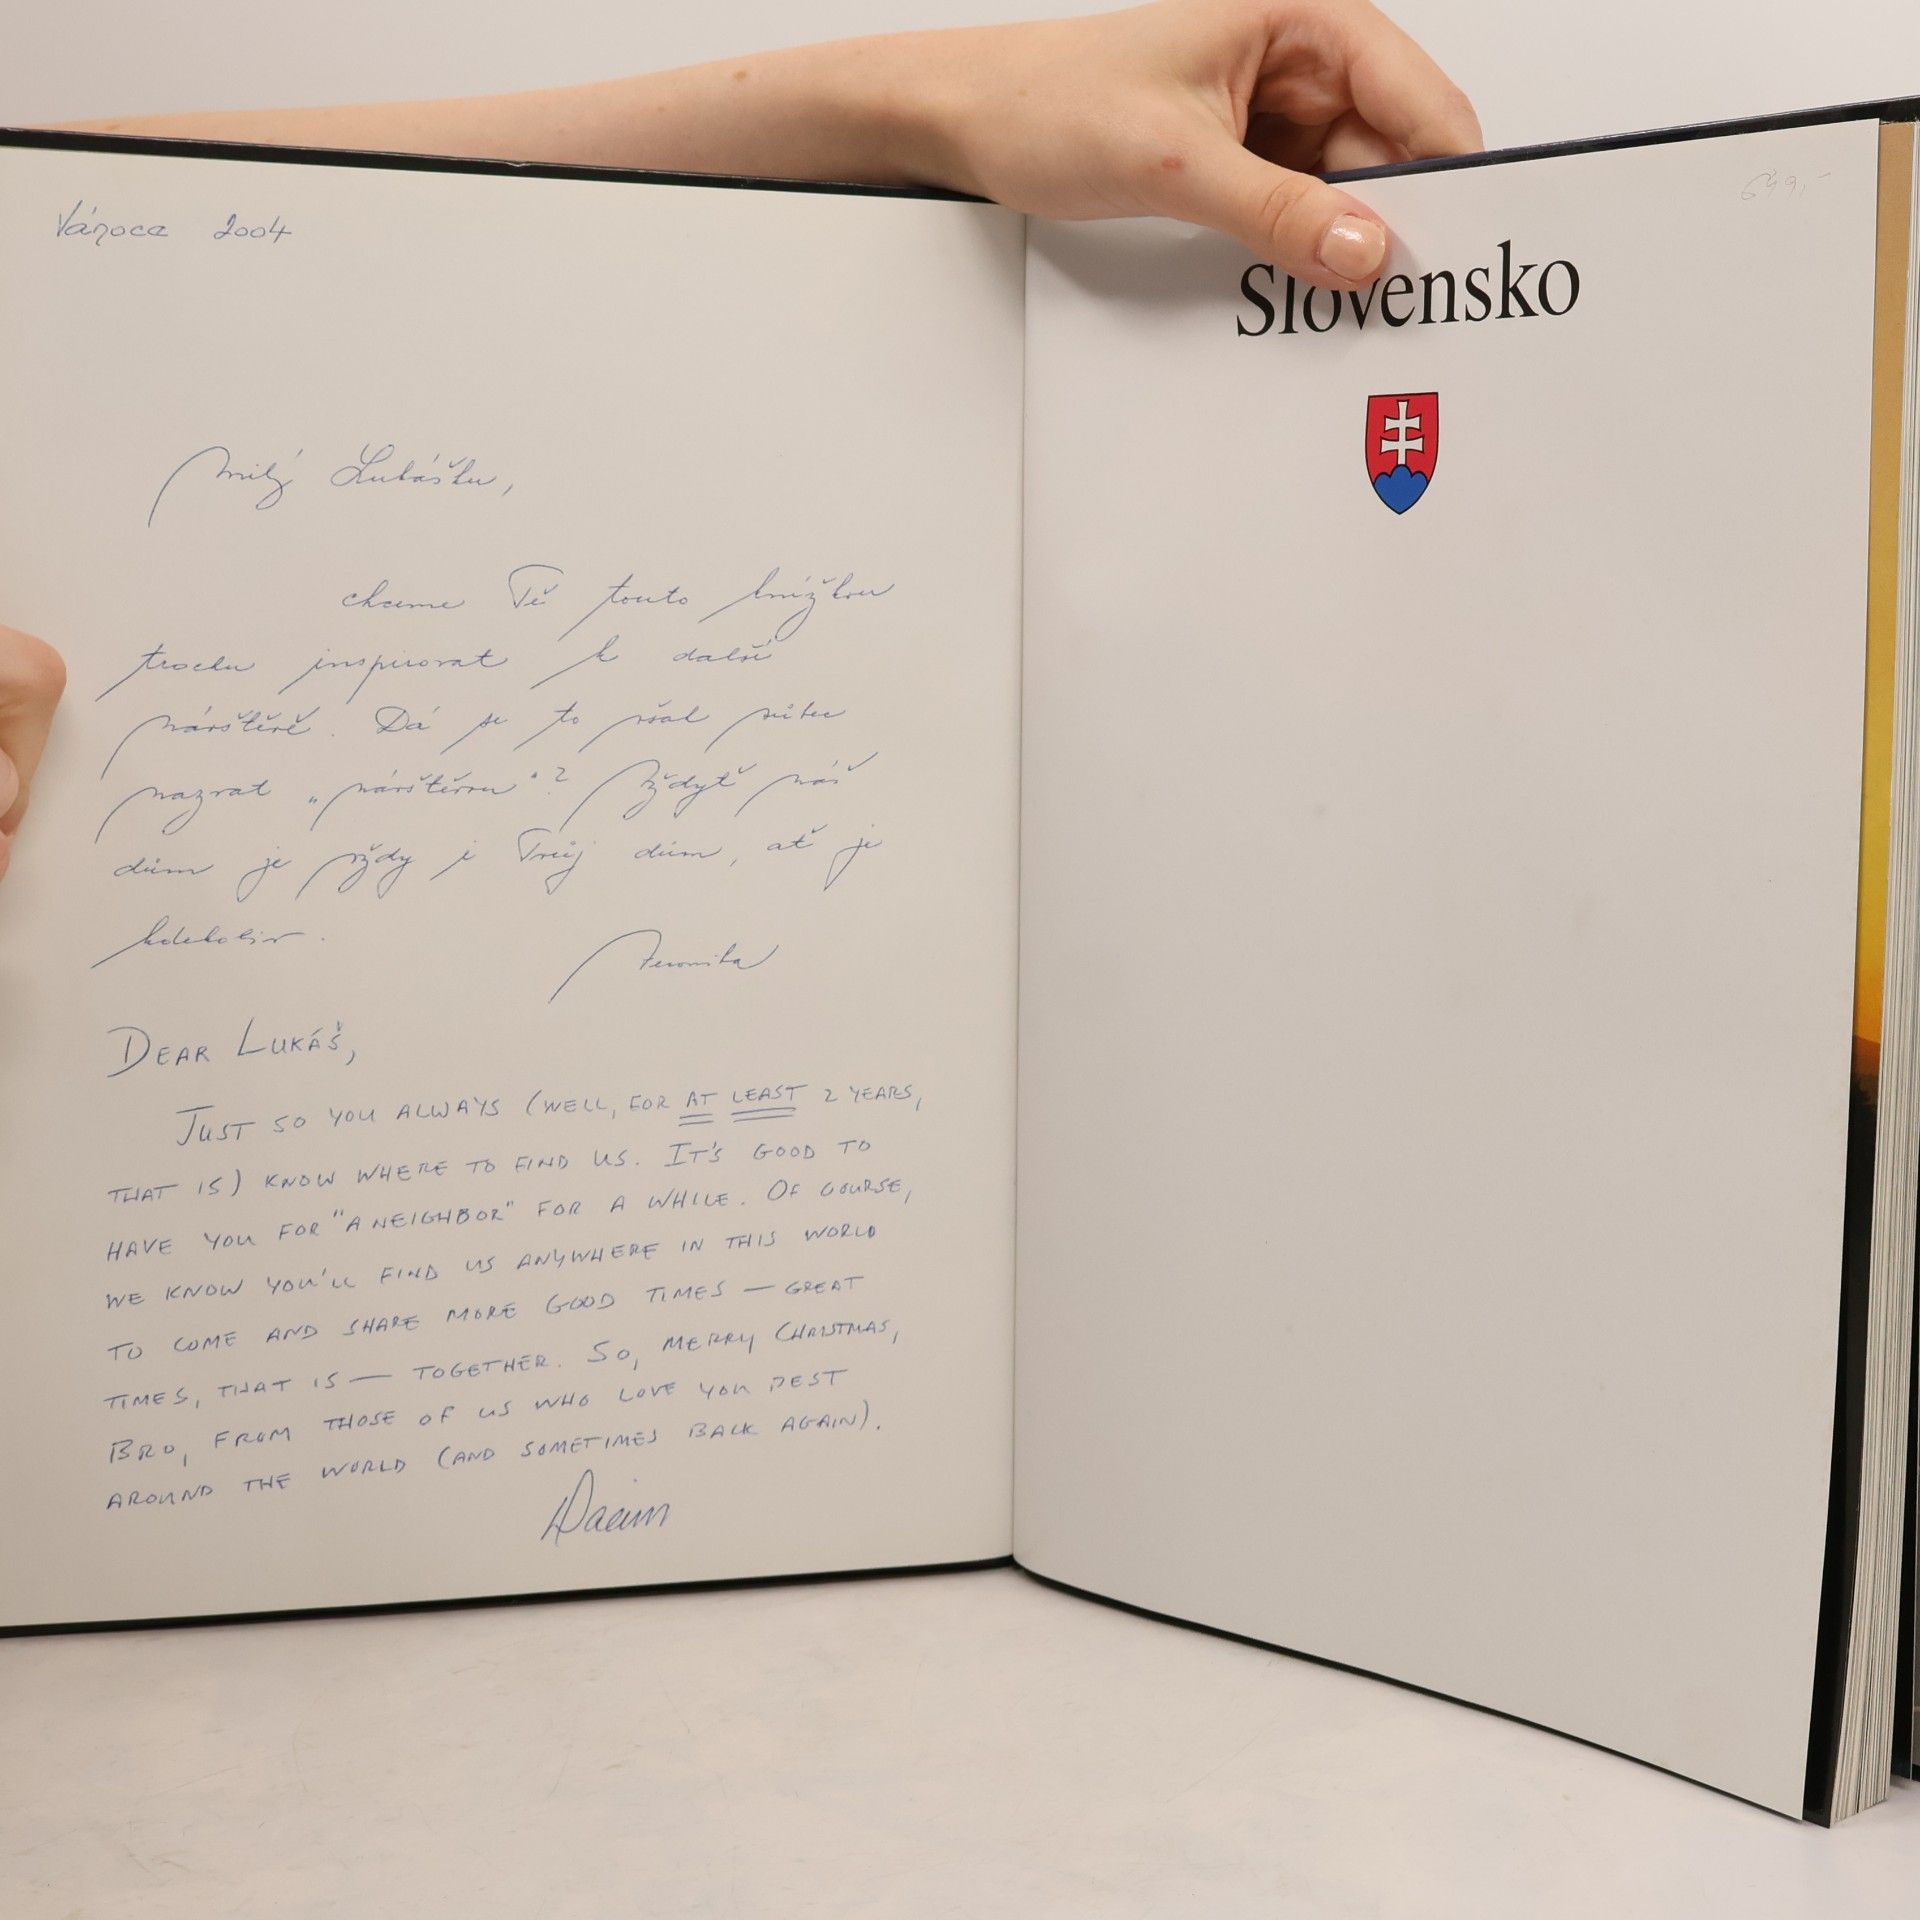 Vánoce 2004
Milý Lukášku,
chceme Tě touto knížkou
trochu inspirovat k další
návštěvě. Dá se to však vůbec
nazvat „návštěvou“? Vždyť náš
dům je vždy i Tvůj dům, ať je
kdekoliv.
Veronika
DEAR LUKÁŠ,
JUST SO YOU ALWAYS (WELL, FOR AT LEAST 2 YEARS,
THAT IS) KNOW WHERE TO FIND US. IT'S GOOD TO
HAVE YOU FOR "A NEIGHBOR" FOR A WHILE. OF COURSE,
WE KNOW YOU'LL FIND US ANYWHERE IN THIS WORLD
TO COME AND SHARE MORE GOOD TIMES — GREAT
TIMES, THAT IS — TOGETHER. SO, MERRY CHRISTMAS,
BRO, FROM THOSE OF US WHO LOVE YOU BEST
AROUND THE WORLD (AND SOMETIMES BACK AGAIN).
Slovensko